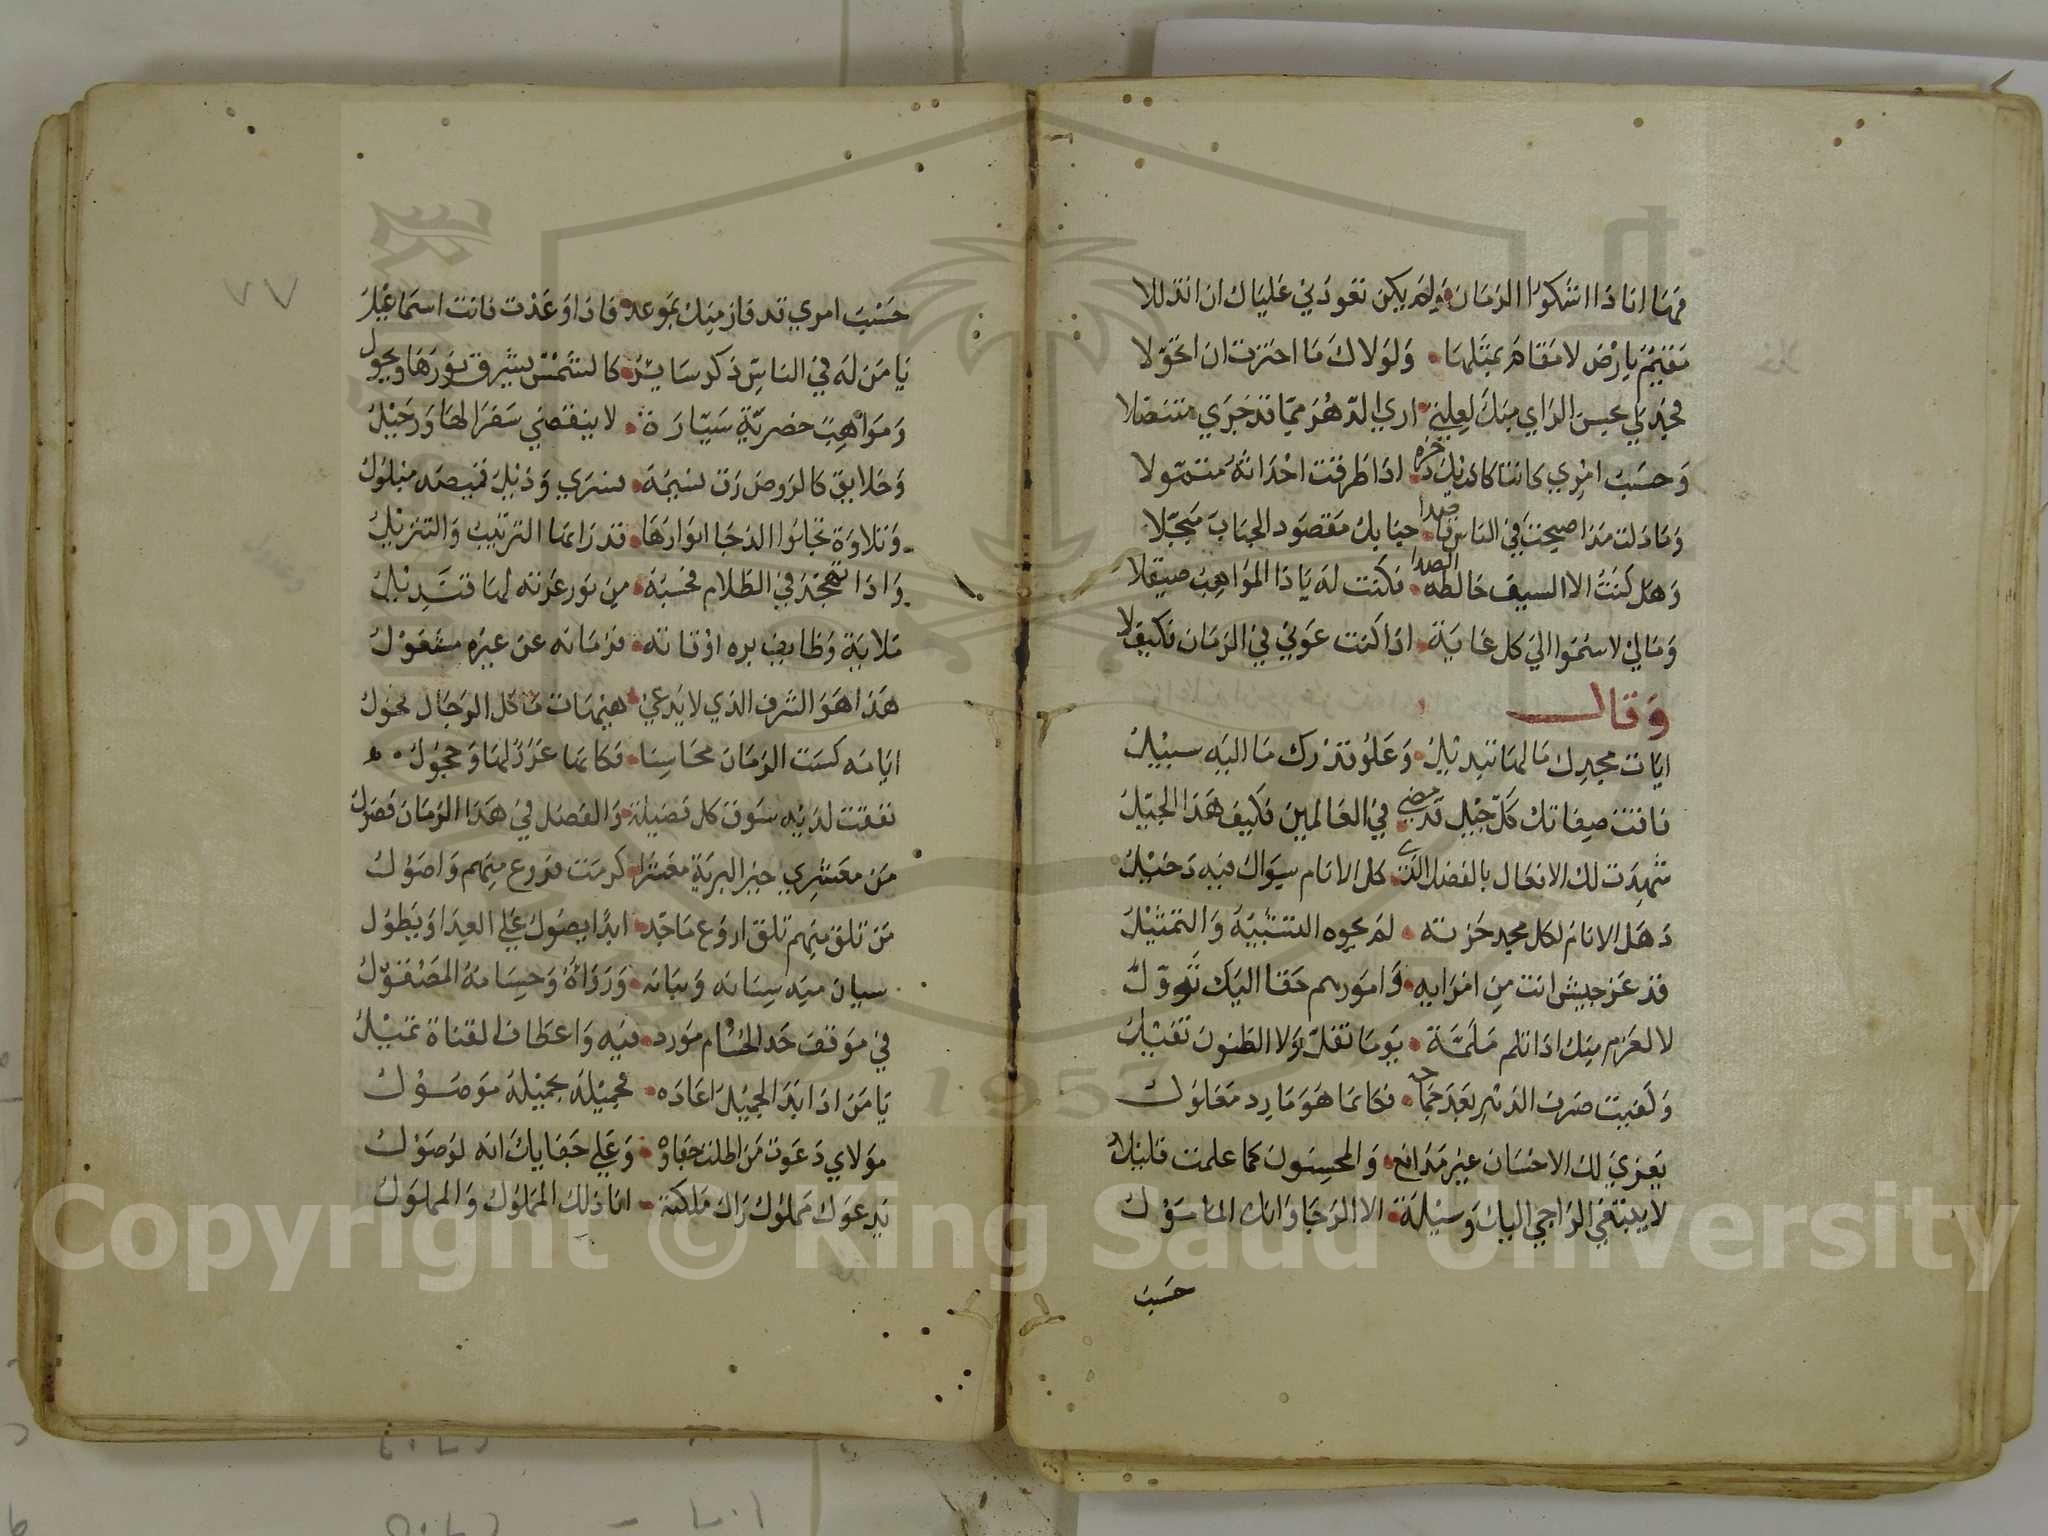 فها انا ذا اشكوا الزمان ولم يكن تعودني علياك ان اتذللا
مقيم بارض لا مقام بمثلها ولولاك ما اخترت ان اتحولا
فخذ لي عيس الراي منك لعلني ارى الدهر مما قد جرى متنصلا
وحسب امري كانت اياديك ذخره اذا طرقت احداثه متمولا
وما زلت مذ اصبحت في الناس قاصدا جنابك مقصود الجناب مبجلا
وهل كنت الا السيف خالطه الصدا فكنت له يا ذا المواهب صيقلا
ومالي لا اسموا الى كل غاية اذا كنت عوني في الزمان وكيف لا
وقال
ايات مجدك ما لها تبديل وعلو قدرك ما اليه سبيل
فاقت صفاتك كل جيل قد مضى في العالمين فكيف هذا الجيل
شهدت لك الافعال بالفضل الذي كل الانام سواك فيه دخيل
وهل الانام لكل مجد حزته لم يحوه التشبيه والتمثيل
قد عز جيش انت من امرايه وامورهم حقا اليك تؤول
لا العزم منك اذا تلم ملمة يوما تفل ولا الظنون تفيل
ولقيت صرف الدهر بعد جماحه فكانما هو مارد مغلول
يعزى لك الاحسان غير مدافع والمحسنون كما علمت قليل
لا يبتغي الراجي اليك وسيلة الا الرجا وانك المامول
حسب
حسب امري قد فاز منك بموعد فاذا وعدت فانت اسماعيل
يا من له في الناس ذكر ساير كالشمس يشرق نورها ويجول
ومواهب خضرية سيارة لا ينقضي سفر لها ورحيل
وخلايق كالروض رق نسيمه يسري وذيل قميصه مبلول
وتلاوة تجلوا الدجا انوارها قد زانها الترتيب والتنزيل
واذا تهجد في الظلام فحسبه من نور غرته لها قنديل
ملات وظايف بره اوقاته فزمانه عن غيره مشغول
هذا هو الشرف الذي لا يدعى هيهات ما كل الرجال فحول
ايامه كست الزمان محاسنا فكانها غرر لها وحجول
نفقت لديه سوق كل فضيلة والفضل في هذا الزمان فضول
من معشر خير البرية معشرا كرمت فروع منهم واصول
من تلق منهم تلق اروع ماجد ابدا يصول على العدا ويطول
سيان منه سنانه وبنانه ورواه وحسامه المصقول
في موقف خد الحسام مورد فيه واعطاف القناة تميل
يا من اذا بدا الجميل اعاده فجميله بجميله موصول
مولاي دعوة من اطلت جفاوه وعلى جفايك انه لوصول
يدعوك مملوك اراك ملكته انا ذلك المملوك والمملوك
٧٧